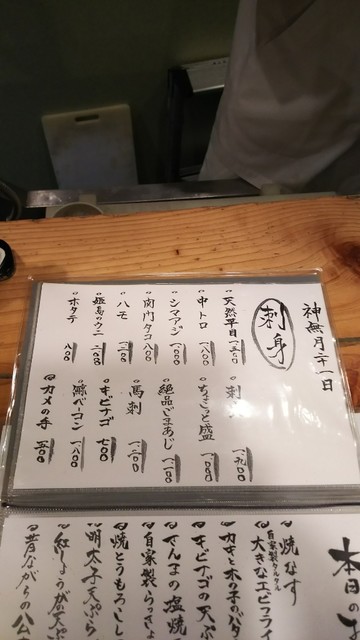 神無月二十一日
刺身
天然平目 一五〇〇
中トロ 一八〇〇
シマアジ 一〇〇〇
関門タコ 八〇〇
ハモ
姫島のウニ
ホタテ 八〇〇
刺 一九〇〇
ちょこっと盛 一〇〇〇
絶品ごまあじ 一一〇〇
馬刺 一二〇〇
キビナゴ 七〇〇
鯨ベーコン 一八〇〇
カメの手 五〇〇
本日の
焼なす
自家製タルタル
大きなエビフライ
カキと木の子のバ
キビナゴの天ぷ
さんまの塩焼
自家製らっきょ
焼とうもろこし
明太子天ぷら
紅しょうが天ぷ
昔ながらの